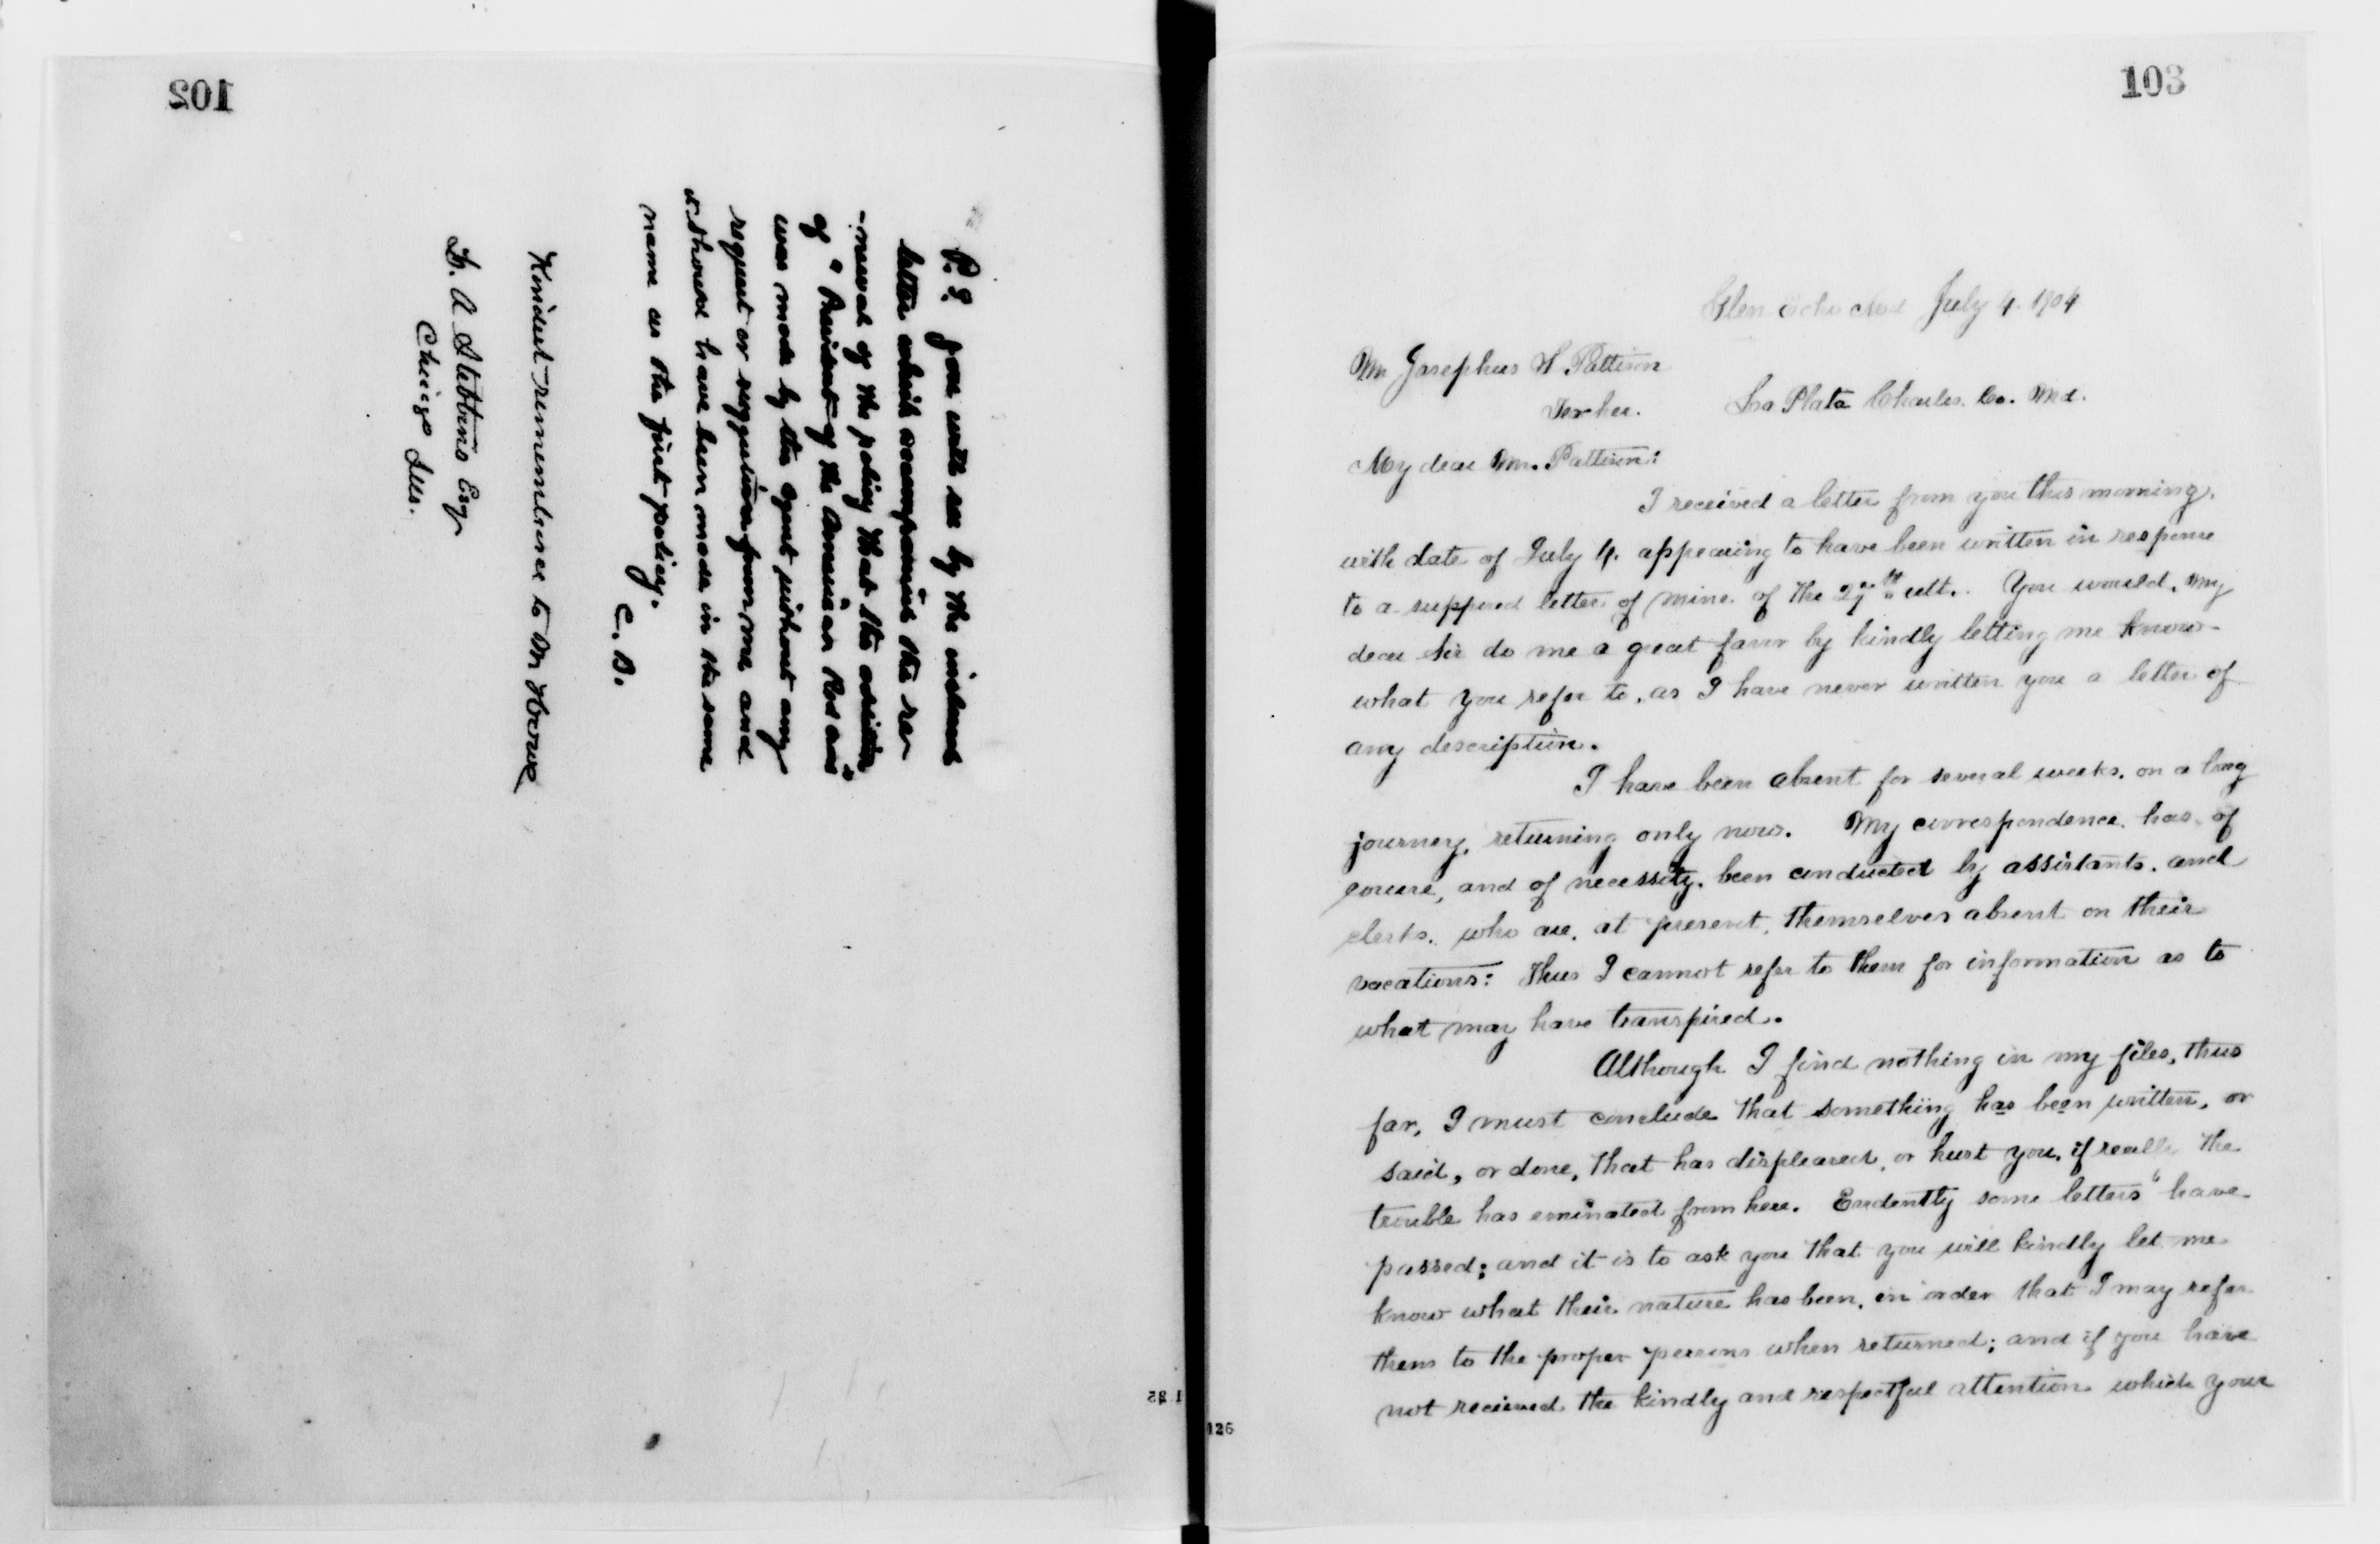 102
P.S. you will see by the inclosed
letter which accompanied the re-
-newal of the policy that the addition
of "President of the American Red Cross"
was made by the agent without any
request or suggestion from me and
it should have been made in the same
name as the first policy.
C. B.
Kindest remembrance to Mr Howe
L. A Stebbins Esq
Chicago Ills.
125
103
Glen Echo Md July 4. 1904
Mr Josephus H Pattison
La Plata Charles. Co. Md.
My dear Mr. Pattison:
I received a letter from you this morning,
with date of July 4. appearing to have been written in response
to a supposed letter of mine of the 27th ult. You would, my
dear Sir do me a great favor by kindly letting me know
what you refer to, as I have never written you a letter of
any description.
I have been absent for several weeks, on a long
journey, returning only now. My correspondence has, of
course, and of necessity, been conducted by assistants, and
clerks, who are, at present, themselves absent on their
vacations: Thus I cannot refer to them for information as to
what may have transpired.
Although I find nothing in my files, thus
far, I must conclude that something has been written, or
said, or done, that has displeased, or hurt you, if really the
trouble has eminated from here. Evidently some letters have
passed; and it is to ask you that you will kindly let me
know what their nature has been, in order that I may refer
them to the proper persons when returned; and if you have
not received the kindly and respectful attention which your
126